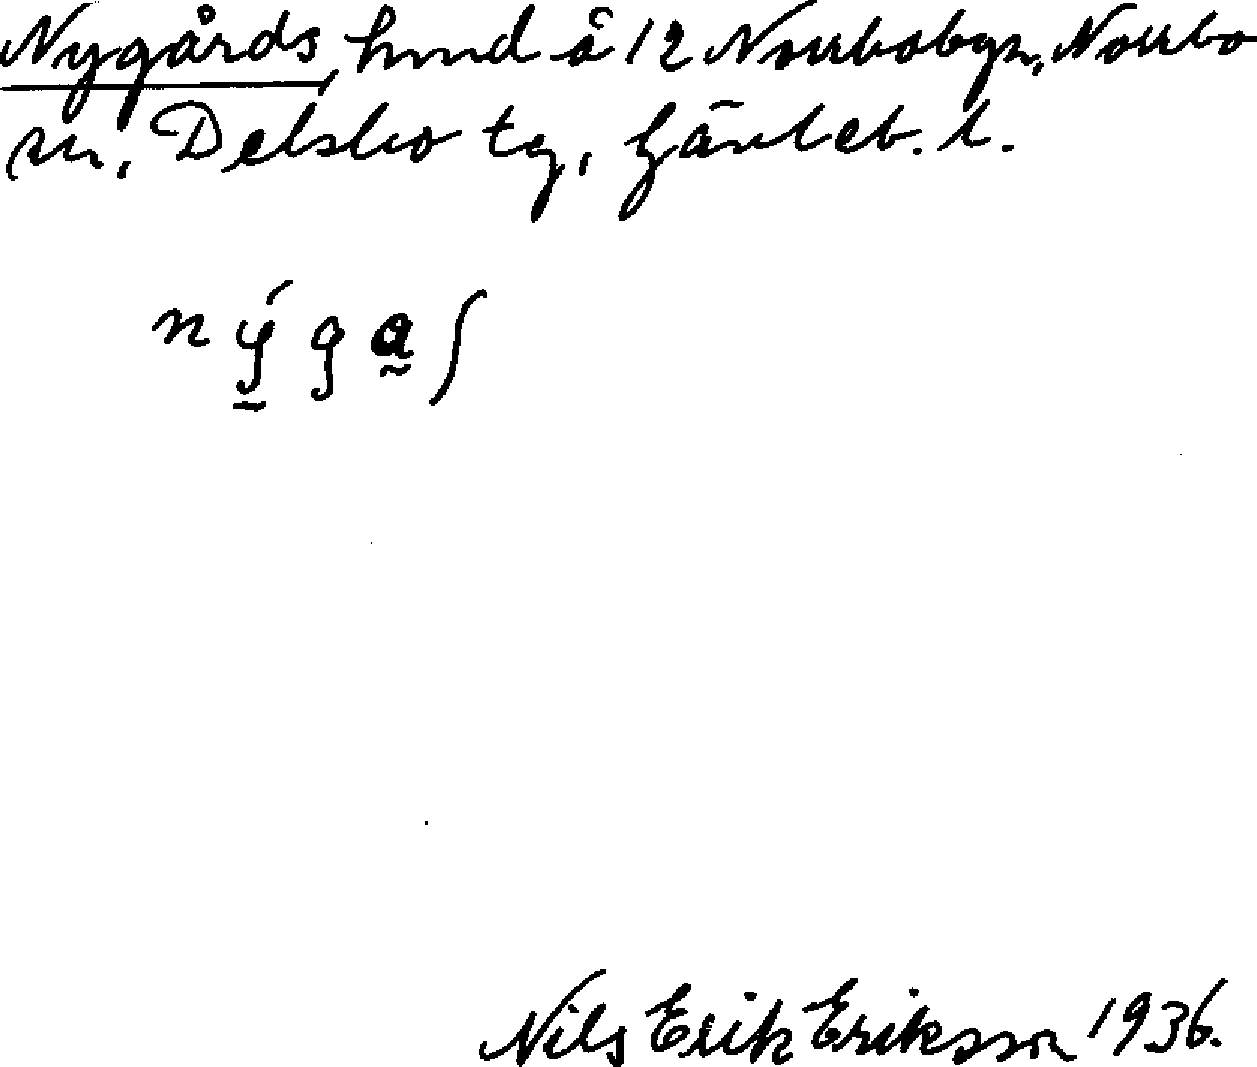 Nygårds, hmd å 12 Norrbobyn, Norrbo
sn, Delsbo tg, Gävleb. l.
nýga̰ʃ
Nils Erik Eriksson 1936.